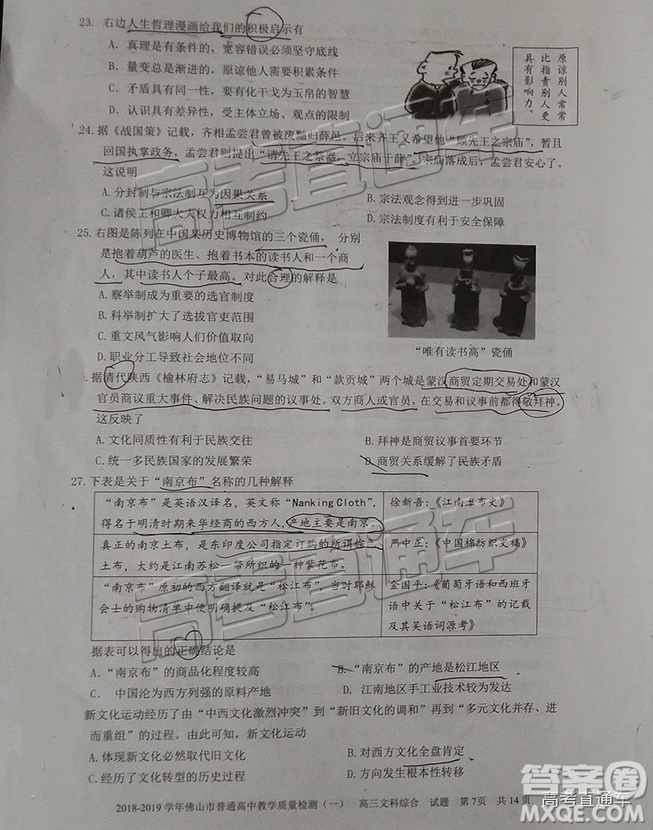 23. 右边人生哲理漫画给我们的积极启示有
A．真理是有条件的，宽容错误必须坚守底线
B．量变总是渐进的，原谅他人需要积累条件
C．矛盾具有同一性，要有化干戈为玉帛的智慧
D．认识具有差异性，受主体立场、观点的限制
原谅别人常常
比指责别人更
具有影响力。
24. 据《战国策》记载，齐相孟尝君曾被废黜归薛邑。后来齐王又希望他“顾先王之宗庙”，暂且
回国执掌政务，孟尝君则提出“请先王之祭器，立宗庙于薛”，宗庙落成后，孟尝君安心了。
这说明
A.分封制与宗法制互为因果关系
B.宗法观念得到进一步巩固
C.诸侯王和卿大夫权力相互制约
D.宗法制度有利于安全保障
25. 右图是陈列在中国某历史博物馆的三个瓷俑，分别
是抱着葫芦的医生、抱着书本的读书人和一个商
人，其中读书人个子最高。对此合理的解释是
A.察举制成为重要的选官制度
B.科举制扩大了选拔官吏范围
C.重文风气影响人们价值取向
D.职业分工导致社会地位不同
“唯有读书高”瓷俑
. 据清代陕西《榆林府志》记载，“易马城”和“款贡城”两个城是蒙汉商贸定期交易处和蒙汉
官员商议重大事件、解决民族问题的议事处。双方商人或官员，在交易和议事前都得敬拜神。
这反映了
A.文化同质性有利于民族交往
B.拜神是商贸议事首要环节
C.统一多民族国家的发展繁荣
D.商贸关系缓解了民族矛盾
27. 下表是关于“南京布”名称的几种解释
“南京布”是英语汉译名，英文称“Nanking Cloth”，
得名于明清时期来华经商的西方人，产地主要是南京。
徐新吾：《江南土布史》
真正的南京土布，是东印度公司指定订购的所谓检之
土布，大约是江南苏松一带所织的一种紫花布。
严中平：《中国棉纺织史稿》
“南京布”原初的西方翻译就是“松江布”，当时耶稣
会士的购物清单便明确提及“松江布”。
金国平：《葡萄牙语和西班牙
语中关于“松江布”的记载
及其吴语词源考》
据表可以得出的正确结论是
A．“南京布”的商品化程度较高
B．“南京布”的产地是松江地区
C．中国沦为西方列强的原料产地
D．江南地区手工业技术较为发达
新文化运动经历了由“中西文化激烈冲突”到“新旧文化的调和”再到“多元文化并存、进
而重组”的过程。由此可知，新文化运动
A.体现新文化必然取代旧文化
B.对西方文化全盘肯定
C.经历了文化转型的历史过程
2018-2019 学年佛山市普通高中教学质量检测（一） 高三文科综合 试题 第 7页 共 14 页
高考直通车
高考直通车
高考直通车
答案圈
MXQE.COM